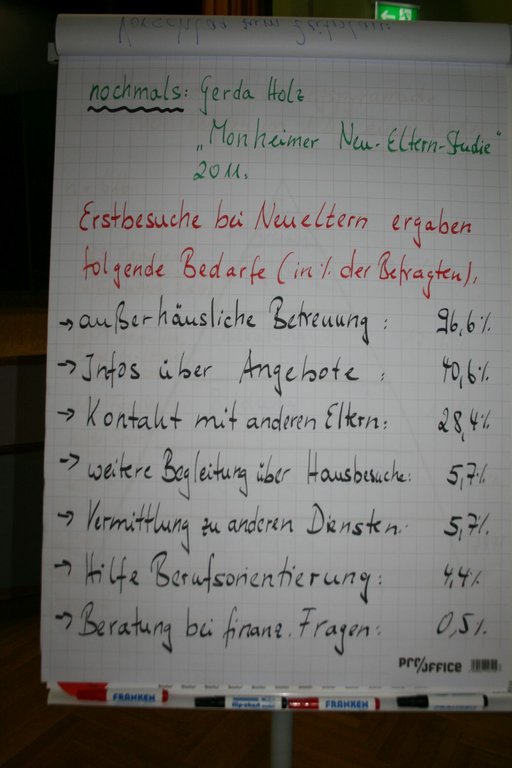 nochmals: Gerda Holz
„Monheimer Neu-Eltern-Studie"
2011.
Erstbesuche bei Neueltern ergaben
folgende Bedarfe (in % der Befragten):
→ außerhäusliche Betreuung: 96,6%
→ Infos über Angebote: 40,6%
→ Kontakt mit anderen Eltern: 28,4%
→ weitere Begleitung über Hausbesuche: 5,7%
→ Vermittlung zu anderen Diensten: 5,7%
→ Hilfe Berufsorientierung: 4,4%
→ Beratung bei finanz. Fragen: 0,5%
PRO/OFFICE
FRANKEN FRANKEN